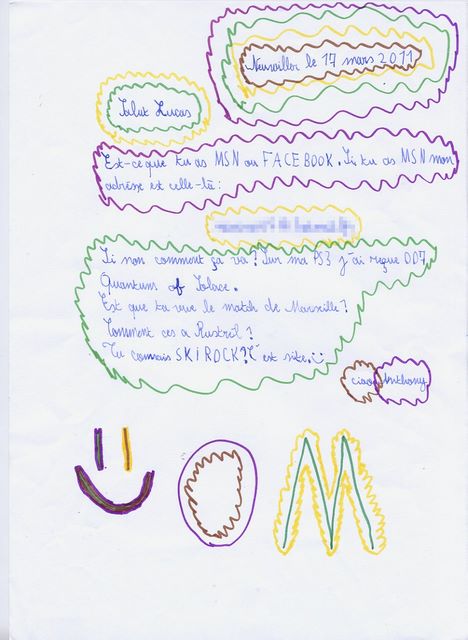 Neuviller le 17 mars 2011
Salut Lucas
Est-ce que tu as MSN ou FACEBOOK. Si tu as MSN mon
adresse est celle-là :
Si non comment ça va ? Sur ma PS3 j'ai reçue 007
Quantum of Solace.
Est que ta vue le match de Marseille ?
Comment ces a Rustrel ?
Tu connais SKIROCK ? C est site.
ciao Anthony
OM